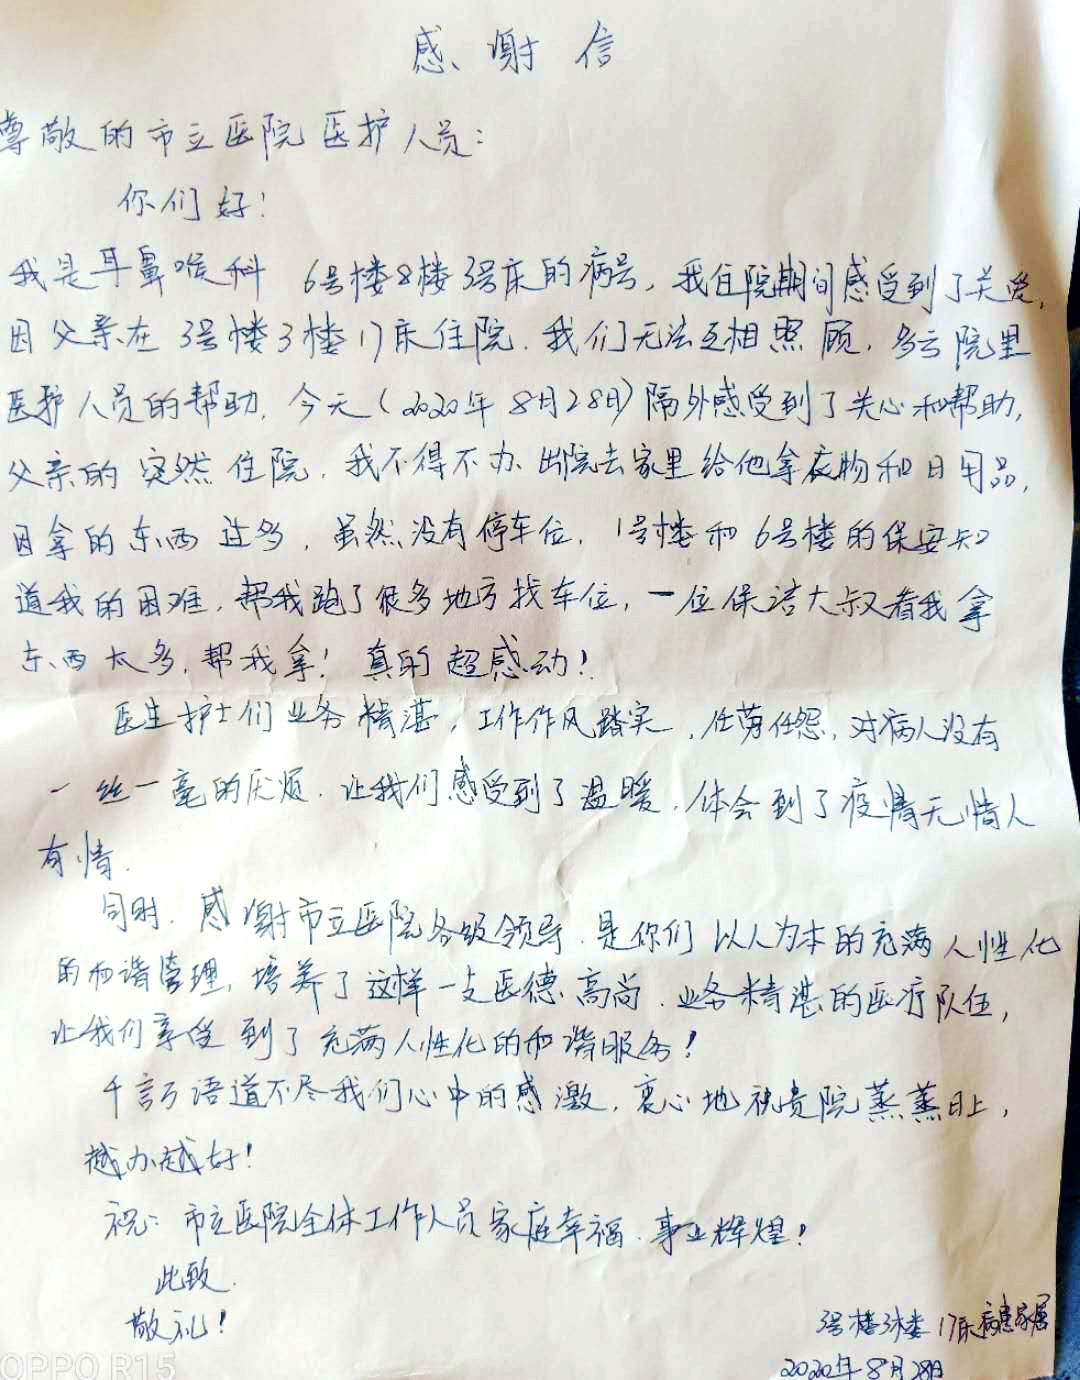 感谢信
尊敬的市立医院医护人员:
你们好!
我是耳鼻喉科 6号楼8楼3号床的病号,我住院期间感受到了关爱,
因父亲在3号楼3楼17床住院.我们无法互相照顾.多亏院里
医护人员的帮助,今天(2020年8月28日)隔外感受到了关心和帮助,
父亲的突然住院,我不得不办出院去家里给他拿衣物和日用品,
因拿的东西过多,虽然没有停车位,1号楼和6号楼的保安知
道我的困难,帮我跑了很多地方找车位,一位保洁大叔看我拿
东西太多,帮我拿!真的超感动!
医生护士们业务精湛,工作作风踏实,任劳任怨,对病人没有
一丝一毫的厌烦.让我们感受到了温暖.体会到了疫情无情人
有情.
同时.感谢市立医院各级领导.是你们以人为本的充满人性化
的和谐管理,培养了这样一支医德高尚.业务精湛的医疗队伍,
让我们享受到了充满人性化的和谐服务!
千言万语道不尽我们心中的感激,衷心地祝贵院蒸蒸日上,
越办越好!
祝:市立医院全体工作人员家庭幸福.事业辉煌!
此致.
敬礼!
3号楼3楼17床病患家属
2020年8月28日
OPPO R15